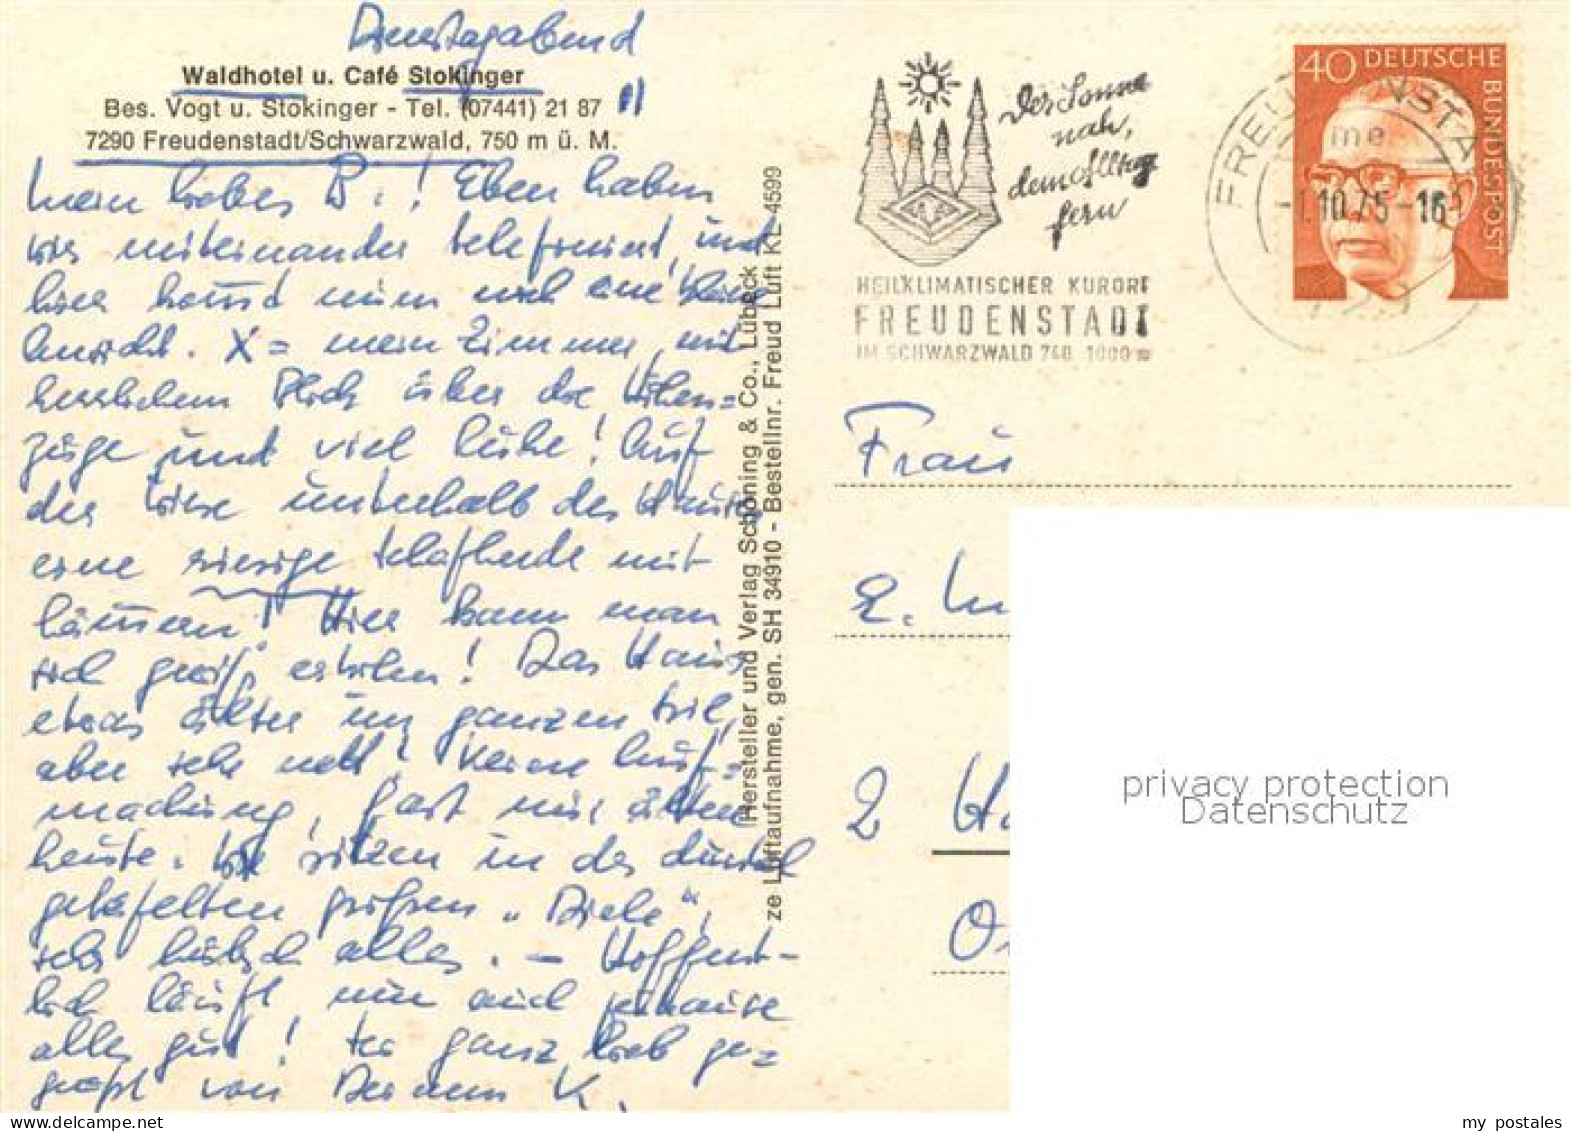 Dienstagabend
Waldhotel u. Café Stokinger
Bes. Vogt u. Stokinger - Tel. (07441) 21 87
7290 Freudenstadt/Schwarzwald, 750 m ü. M.
Mein liebes B.! Eben haben
wir miteinander telefoniert, und
hier kommt nun noch eine kleine
Ansicht. X = mein Zimmer, mit
herrlichem Blick über die Höhen=
züge und viel Ruhe! Auf
der Wiese unterhalb des Hauses
eine riesige Schafherde mit
Lämmern! Hier kann man
sich gewiß erholen! Das Haus
etwas älter im ganzen Stil,
aber sehr nett! Keine Auf=
machung, fast nur ältere
heute. Wir sitzen in der dunkel
getäfelten großen „Diele“,
sehr hübsch alles. – Hoffent-
lich läuft nun auch zuhause
alles gut! Sei ganz lieb ge=
grüßt von Deinem K.
Hersteller und Verlag Schöning & Co., Lübeck
ze Luftaufnahme, gen. SH 34910 - Bestellnr. Freud Luft KL 4599
Der Sonne
nah,
dem Alltag
fern
HEILKLIMATISCHER KURORT
FREUDENSTADT
IM SCHWARZWALD 740 - 1000 m
FREUDENSTA
me
-1.10.75-16
729
40 DEUTSCHE
BUNDESPOST
Frau
E.
2 Ha
privacy protection
Datenschutz
my postales